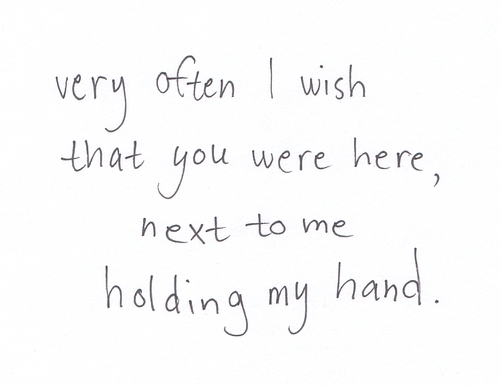 very often I wish
that you were here,
next to me
holding my hand.